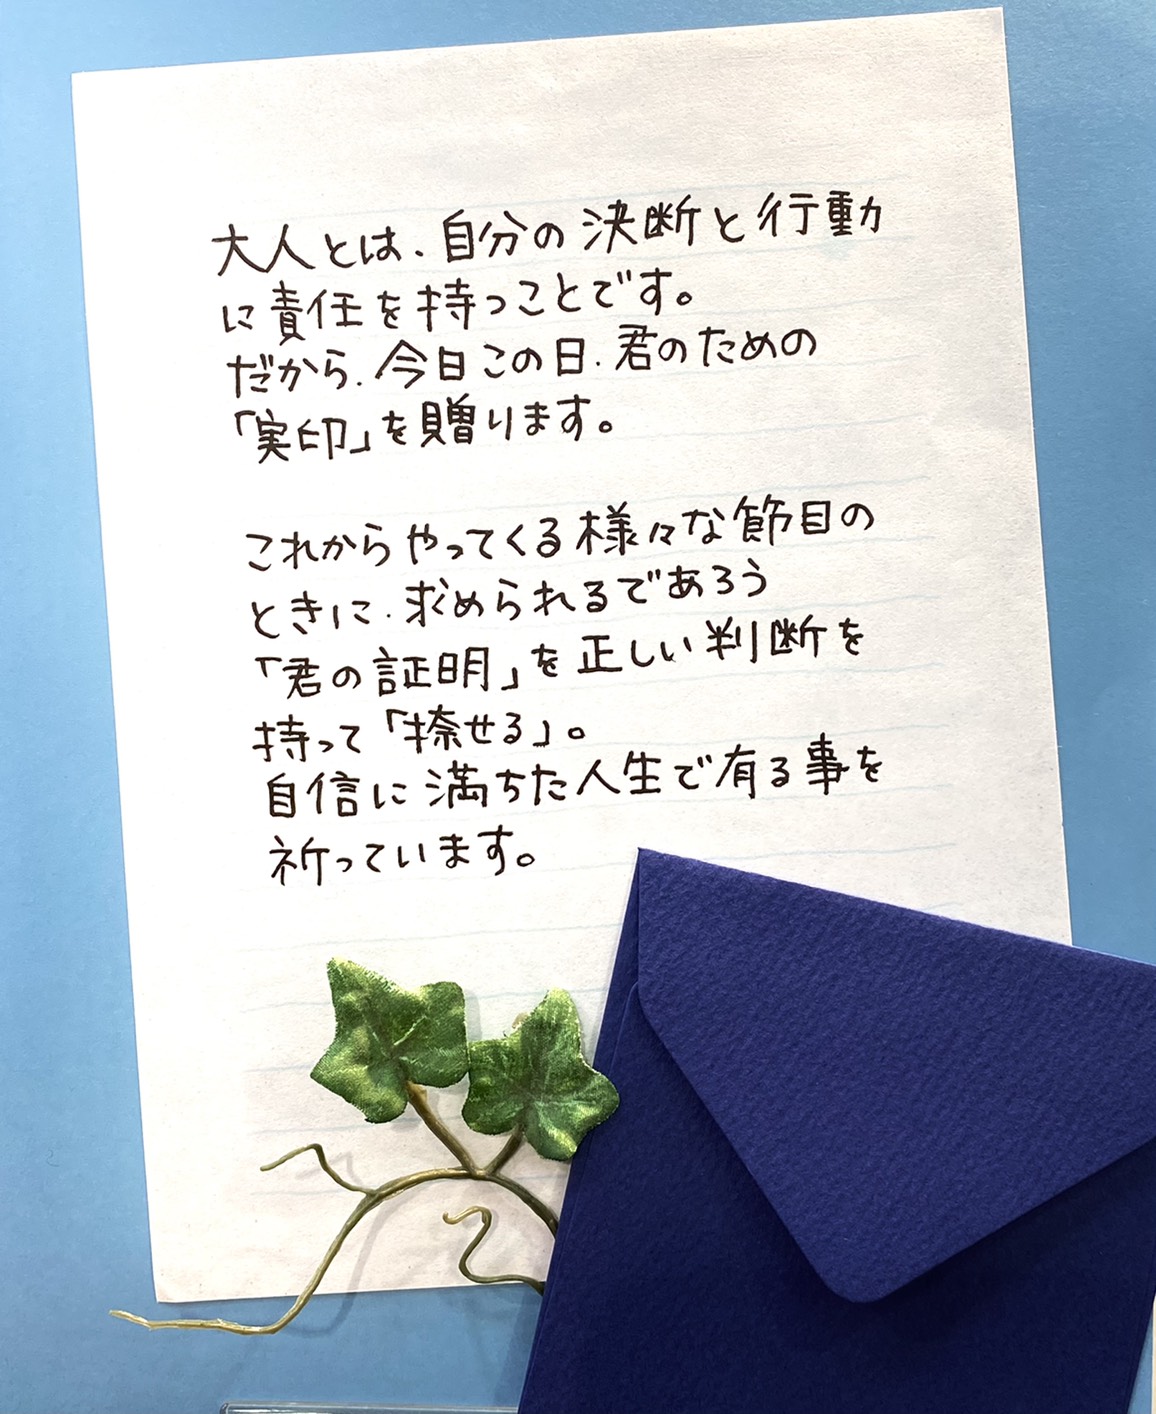 大人とは、自分の決断と行動
に責任を持つことです。
だから、今日この日、君のための
「実印」を贈ります。
これからやってくる様々な節目の
ときに、求められるであろう
「君の証明」を正しい判断を
持って「捺せる」。
自信に満ちた人生で有る事を
祈っています。